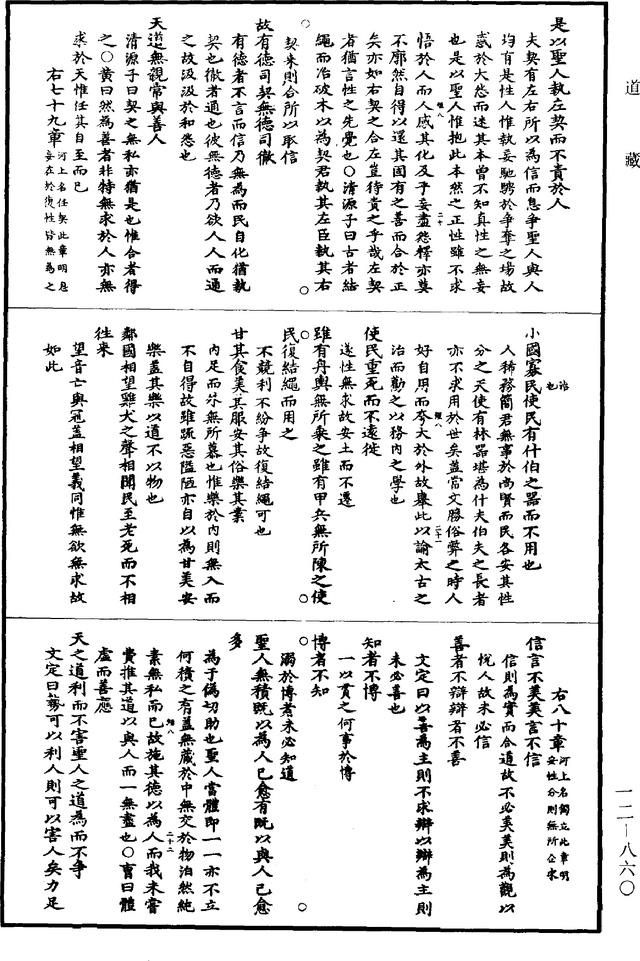 道藏
是以聖人執左契而不責於人
夫契有左右所以為信而息爭聖人與人
均有是性人惟執妄馳騁於爭奪之場故
惑於大怨而迷其本曾不知真性之無妄
也是以聖人惟抱此本然之正性雖不求
悟於人而人感其化及乎妄盡怨釋亦莫
不廓然自得以還其固有之善而合於正
矣亦如右契之合左豈待責之乎哉左契
者猶言性之先覺也○清源子曰古者結
繩而治破木以為契君執其左臣執其右
契來則合所以取信
故有德司契無德司徹
有德者不言而信乃無為而民自化猶執
契也徹者通也彼無德者乃欲人人而通
之故汲汲於和怨也
天道無親常與善人
清源子曰契之無私亦猶是也惟合者得
之○黃曰然為善者非特無求於人亦無
求於天惟任其自至而已
右七十九章
河上名任契此章明息
妄在於復性皆無為之
治也
小國寡民使民有什伯之器而不用也
人稀務簡君無事於尚賢而民各安其性
分之天使有林器堪為什夫伯夫之長者
亦不求用於世矣蓋當文勝俗弊之時人
好自用而夸大於外故舉此以諭太古之
治而勸之以務內之學也
使民重死而不遠徙
遂性無求故安土而不遷
雖有舟輿無所乘之雖有甲兵無所陳之使
民復結繩而用之
不競利不紛爭故復結繩可也
甘其食美其服安其俗樂其業
內足而外無所慕也惟樂於內則無入而
不自得故雖疏惡隘陋亦自以為甘美安
樂蓋其樂以道不以物也
鄰國相望雞犬之聲相聞民至老死而不相
往來
望音亡與冠蓋相望義同惟無欲無求故
如此
右八十章
河上名獨立此章明
安性分則無所企求
信言不美美言不信
信則為實而合道故不必美美則為觀以
悅人故未必信
善者不辯辯者不善
文定曰以善為主則不求辯以辯為主則
未必善也
知者不博
一以貫之何事於博
博者不知
溺於博者未必知道
聖人無積既以為人已愈有既以與人已愈
多
為于偽切助也聖人當體即一一亦不立
何積之有蓋無藏於中無交於物泊然純
素無私而已故施其德以為人而我未嘗
費推其道以與人而一無盡也○曹曰體
虛而善應
天之道利而不害聖人之道為而不爭
文定曰勢可以利人則可以害人矣力足
一二—八六○